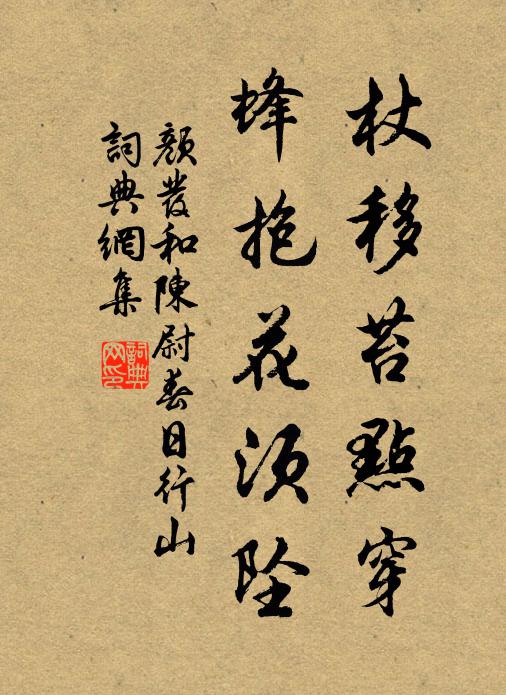 杖移苔點穿
蜂抱花須墜
顏發和陳尉春日行山
詞典網集
詞典
网印